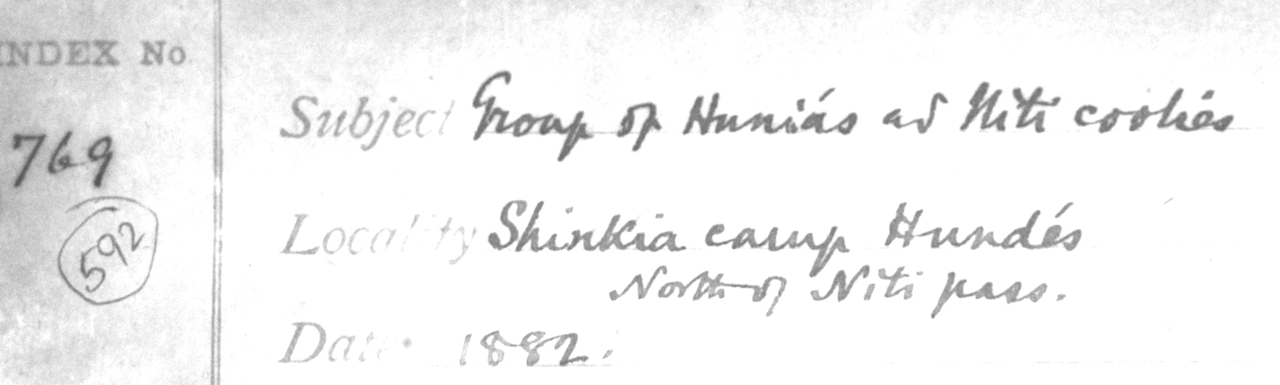 INDEX No
769
592
Subject Group of Huniás ad Niti coolies
Locality Shinkia camp Hundés
North of Niti pass.
Date 1882.